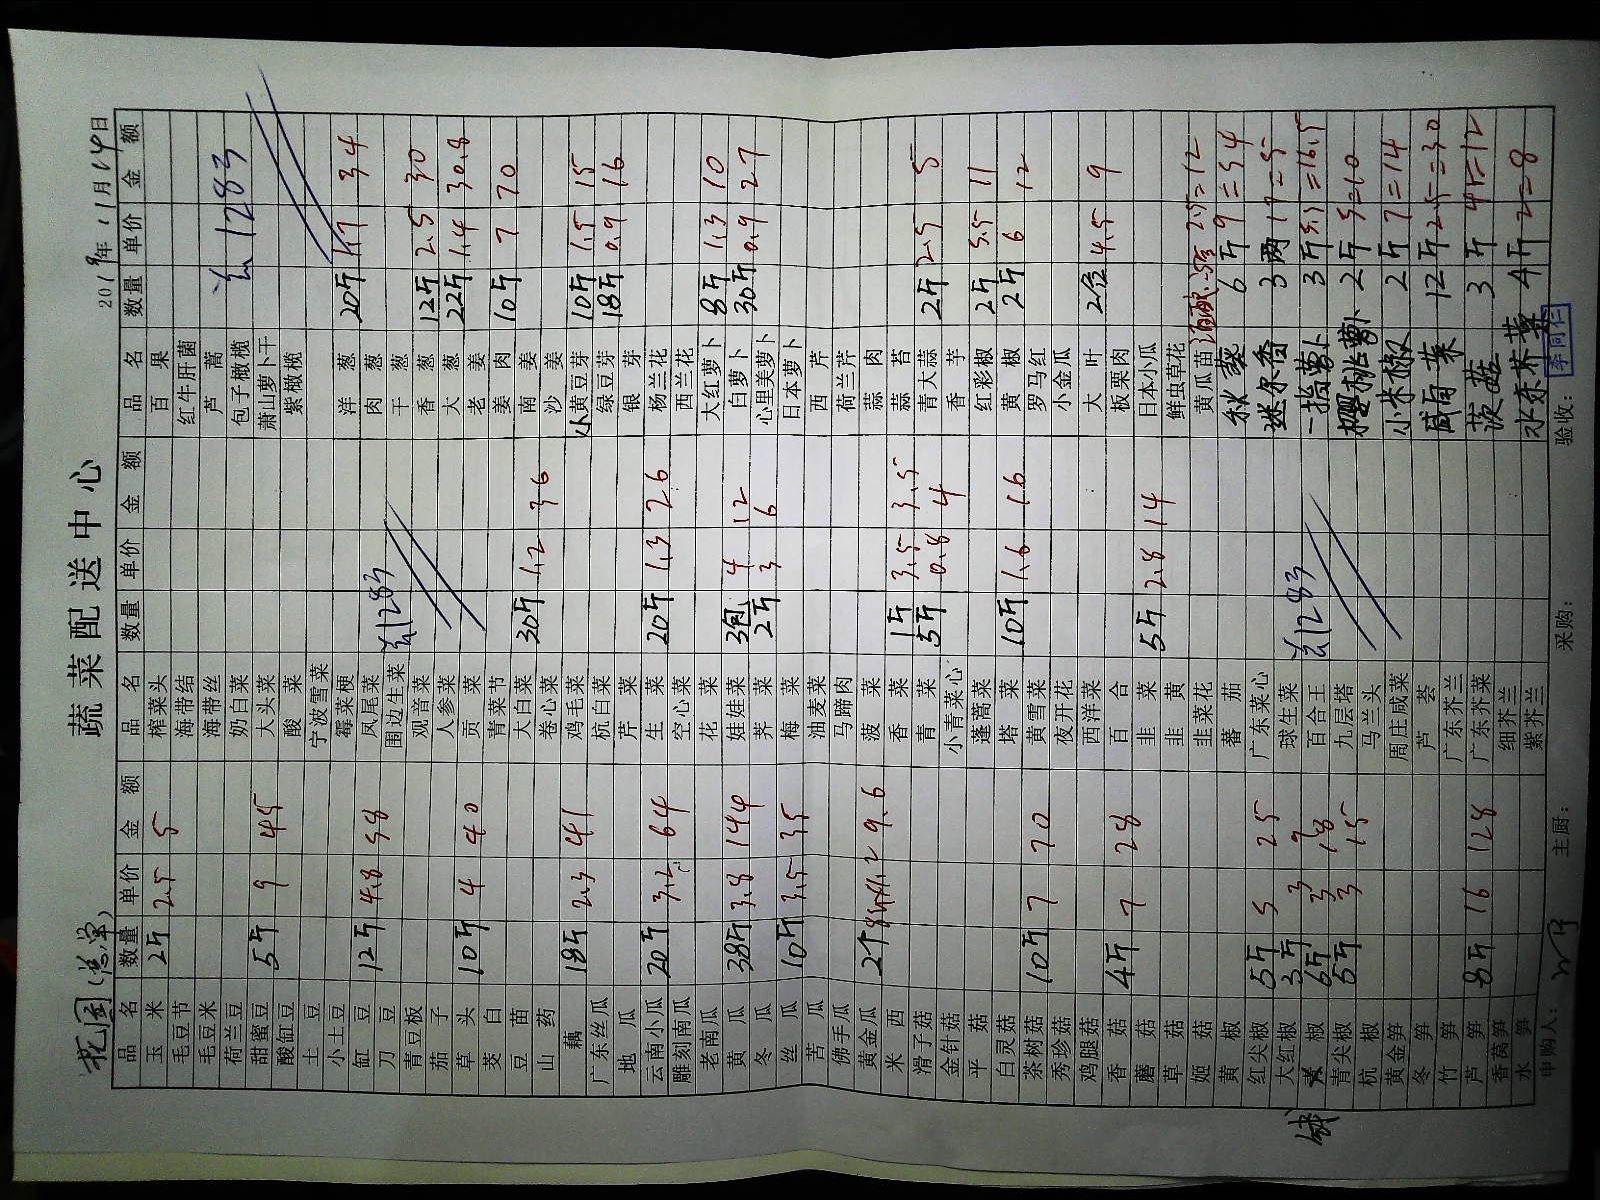 蔬菜配送中心
花园(总单) 2019年1月14日
品名 数量 单价 金额 品名 数量 单价 金额 品名 数量 单价 金额
玉米 2斤 2.5 5 榨菜头 百果
毛豆节 海带结 红牛肝菌
毛豆米 海带丝 芦蒿
荷兰豆 奶白菜 包子橄榄 共1283
甜蜜豆 5斤 9 45 大头菜 萧山萝卜干
酸缸豆 酸菜 紫橄榄
土豆 宁波雪菜
小土豆 霉菜梗 洋葱 20斤 1.7 34
缸豆 12斤 4.8 58 凤尾菜 肉葱
刀豆 围边生菜 共1283 干葱
青豆板 观音菜 香葱 12斤 2.5 30
茄子 人参菜 大葱 22斤 1.4 30.8
草头 10斤 4 40 贡菜 老姜
茭白 青菜节 姜肉 10斤 7 70
豆苗 大白菜 30斤 1.2 36 南姜
山药 卷心菜 沙姜
藕 18斤 2.3 41 鸡毛菜 小黄豆芽 10斤 1.5 15
广东丝瓜 杭白菜 绿豆芽 18斤 0.9 16
地瓜 芹菜 银芽
云南小瓜 20斤 3.2 64 生菜 20斤 1.3 26 杨兰花
雕刻南瓜 空心菜 西兰花
老南瓜 花菜 大红萝卜 8斤 1.3 10
黄瓜 38斤 3.8 144 娃娃菜 3包 4 12 白萝卜 30斤 0.9 27
冬瓜 荠菜 2斤 3 6 心里美萝卜
丝瓜 10斤 3.5 35 梅菜 日本萝卜
苦瓜 油麦菜 西芹
佛手瓜 马蹄肉 荷兰芹
黄金瓜 9.6 菠菜 蒜肉
米西 香菜 1斤 3.5 3.5 蒜苔
滑子菇 青菜 5斤 0.8 4 青大蒜 2斤 2.5 5
金针菇 小青菜心 香芋
平菇 蓬蒿菜 红彩椒 2斤 5.5 11
白灵菇 塔菜 10斤 1.6 16 黄椒 2斤 6 12
茶树菇 10斤 7 70 黄雪菜 罗马红
秀珍菇 夜开花 小金瓜
鸡腿菇 西洋菜 大叶 2盒 4.5 9
香菇 4斤 7 28 百合 板栗肉
蘑菇 韭菜 5斤 2.8 14 日本小瓜
草菇 韭黄 鲜虫草花
姬菇 韭菜花 黄瓜苗 2.5=12
黄椒 蕃茄 秋葵 6斤 9=54
红尖椒 5斤 5 25 广东菜心 迷尔香 3两 17=5
大红椒 3斤 3 9 球生菜 共1283 一抬萝卜 3斤 5.5=16.5
椒 6斤 3 18 百合王 樱桃萝卜 2斤 5=10
青尖椒 5斤 3 15 九层塔
杭椒 马兰头 小米椒 2斤 7=14
黄金笋 周庄咸菜
冬笋 芦荟 咸菜 12斤 2.5=30
竹笋 广东芥兰
芦笋 8斤 16 128 广东芥菜 茨菇 3斤 4=12
香莴笋 细芥兰
水笋 紫芥兰 水东芥菜 4斤 2=8
申购人： 主厨： 采购： 验收： 李同仁